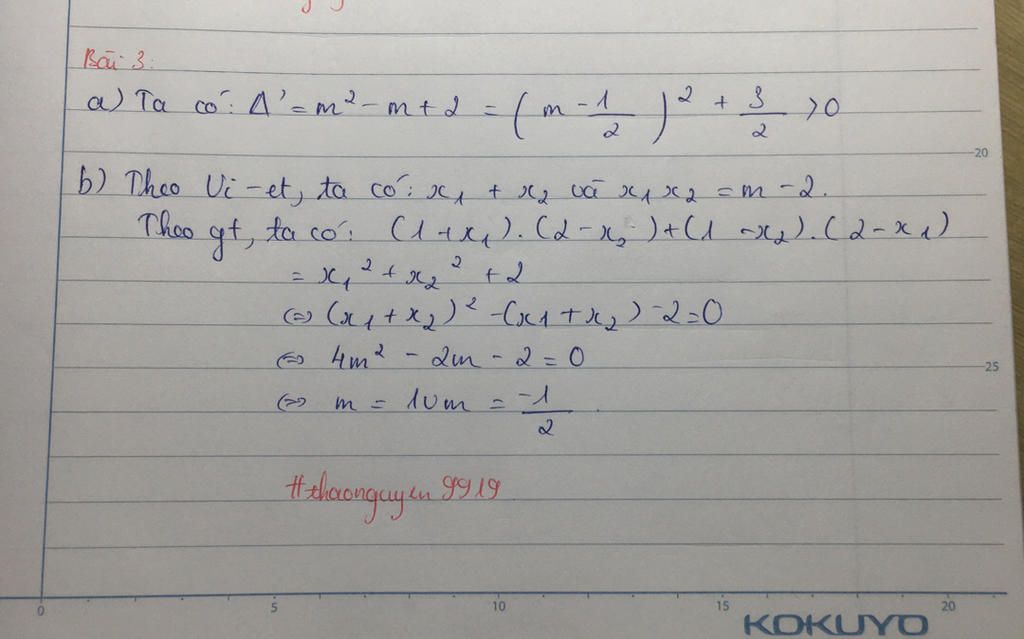 Bài 3:
a) Ta có: Δ' = m² - m + 2 = (m - 1/2)² + 3/2 > 0
20
b) Theo Vi-et, ta có: x₁ + x₂ và x₁x₂ = m - 2.
Theo gt, ta có: (1 + x₁).(2 - x₂) + (1 - x₂).(2 - x₁)
= x₁² + x₂² + 2
⇔ (x₁ + x₂)² - (x₁ + x₂) - 2 = 0
⇔ 4m² - 2m - 2 = 0
25
⇔ m = 1 v m = -1/2.
#thaonguyen 9919
0 5 10 15 20
KOKUYO